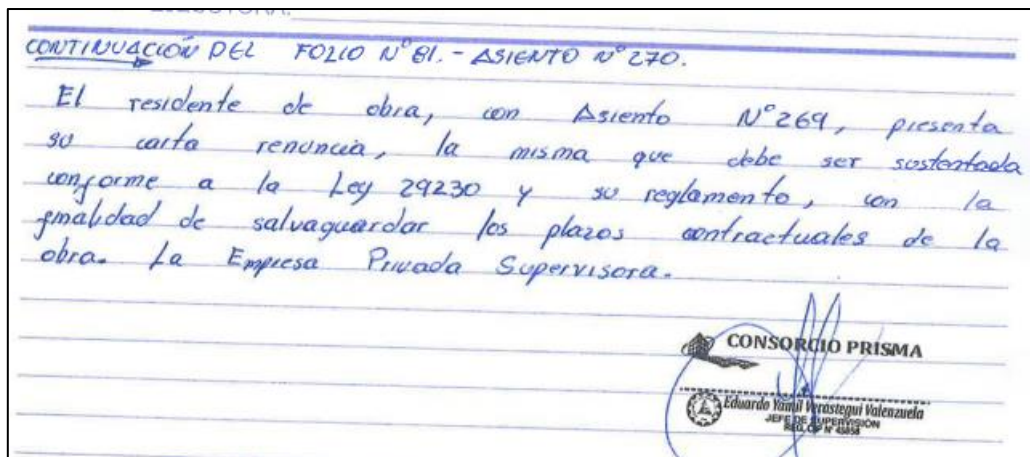 CONTINUACIÓN DEL FOLIO N° 81. - ASIENTO N° 270.
El residente de obra, con Asiento N° 269, presenta
su carta renuncia, la misma que debe ser sustentada
conforme a la Ley 29230 y su reglamento, con la
finalidad de salvaguardar los plazos contractuales de la
obra. La Empresa Privada Supervisora.
CONSORCIO PRISMA
Eduardo Yamil Verástegui Valenzuela
JEFE DE SUPERVISIÓN
REG. CIP N°